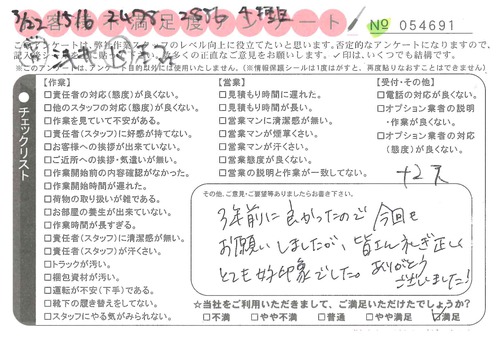 お客様不満足度アンケート
№ 054691
このアンケートは、弊社作業スタッフのレベル向上に役立てたいと思います。否定的なアンケートになりますので、
多くの正直なご意見をお願いします。✓印は、いくつでも結構です。
※このアンケートは、アンケート目的以外には使用いたしません。(※情報保護シールは1度はがすと、再度貼りなおすことはできません)
チェックリスト
【作業】
□責任者の対応(態度)が良くない。
□他のスタッフの対応(態度)が良くない。
□作業を見ていて不安がある。
□責任者(スタッフ)に好感が持てない。
□お客様への挨拶が出来ていない。
□ご近所への挨拶・気遣いが無い。
□作業開始前の内容確認がなかった。
□作業開始時間が遅れた。
□荷物の取り扱いが雑である。
□お部屋の養生が出来ていない。
□作業時間が長すぎる。
□責任者(スタッフ)に清潔感が無い。
□責任者(スタッフ)が汗くさい。
□トラックが汚い。
□梱包資材が汚い。
□運転が不安(下手)である。
□靴下の履き替えをしてない。
□スタッフにやる気がみられない。
【営業】
□見積もり時間に遅れた。
□見積もり時間が長い。
□営業マンに清潔感が無い。
□営業マンが煙草くさい。
□営業マンが汗くさい。
□営業態度が良くない。
□営業の説明と作業が一致してない。
【受付・その他】
□電話の対応が良くない。
□オプション業者の説明
・作業が良くない。
□オプション業者の対応
(態度)が良くない。
+2天
その他、ご意見・ご要望等ありましたらお書き下さい。
3年前に良かったので今回も
お願いしましたが、皆さん礼ぎ正しく
とても好印象でした。ありがとう
ございました!
☆当社をご利用いただきまして、ご満足いただけたでしょうか?
□不満 □やや不満 □普通 □やや満足 ☑満足